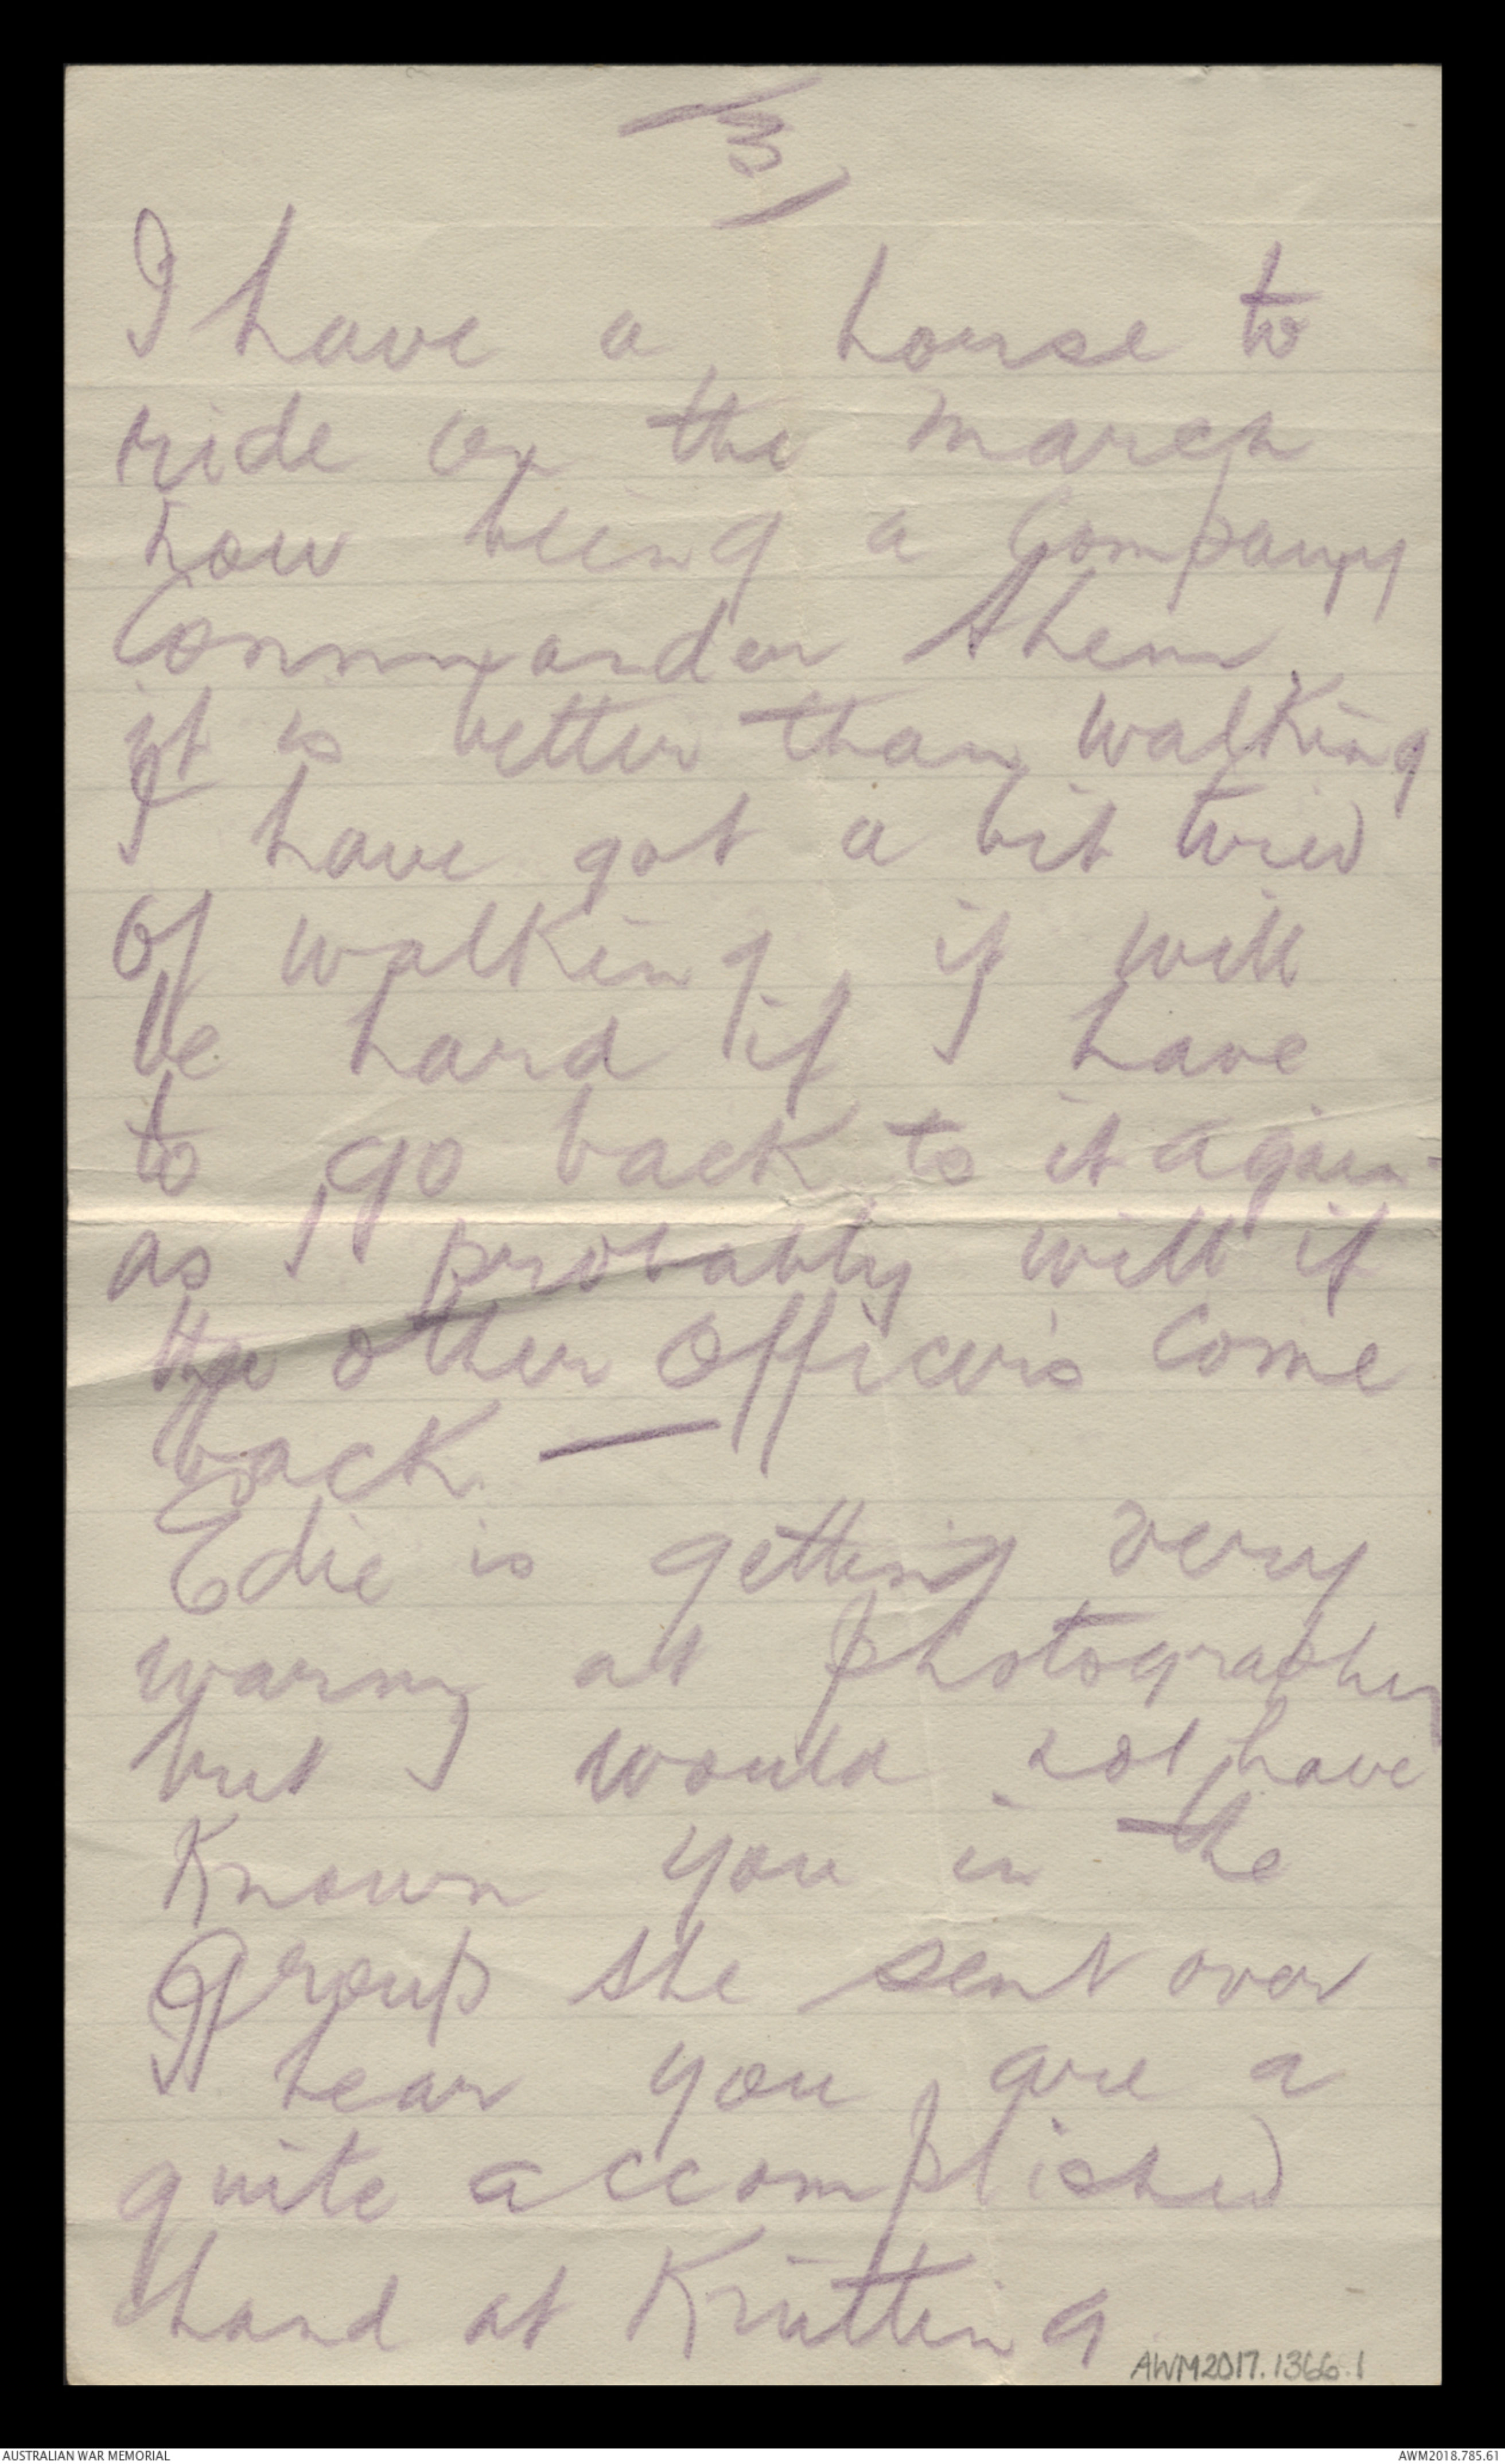 3
I have a horse to
ride on the march
now being a Company
Commander
it is better than walking
I have got a bit tired
of walking, it will
be hard if I have
to go back to it again
as I probably will if
the other Officers come
back. —
Edie is getting very
warm at photography
but I would not have
Known you in the
group she sent over
I hear you are a
quite accomplished
hand at Knitting
AWM2017.1366.1
AUSTRALIAN WAR MEMORIAL
AWM2018.785.61